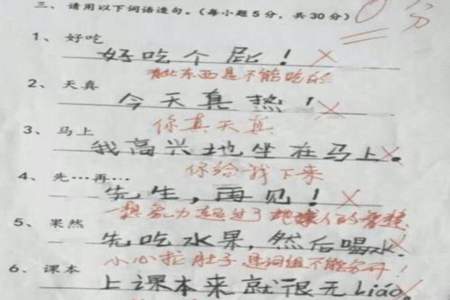 三、请用以下词语造句。（每小题5分，共30分） 0分
1、好吃
好吃个屁！×
有些东西是不能吃的
2、天真
今天真热！×
你真天真
3、马上
我高兴地坐在马上。
你给我下来
4、先…再…
先生，再见！×
想象力超过了地球人的智慧
5、果然
先吃水果，然后喝水。
小心拉肚子 是词组不能分开！
6、课本
上课本来就很无liáo。